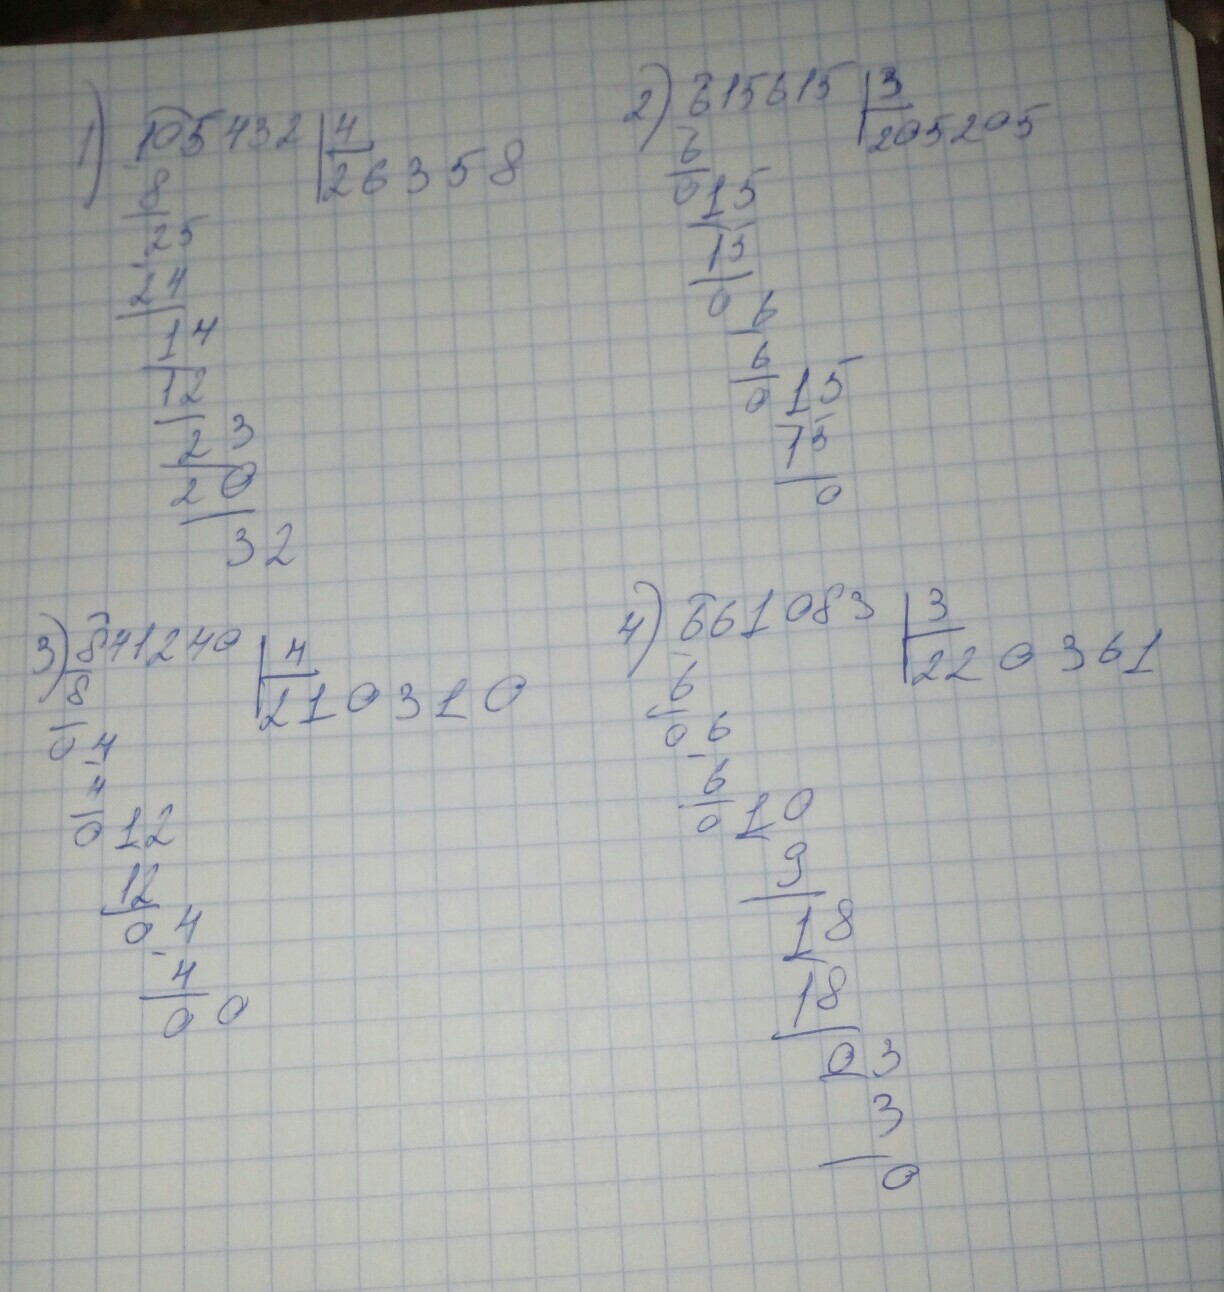 1) 105432 | 4
8 | 26358
25
24
14
12
23
20
32
2) 615615 | 3
6 | 205205
015
15
0 6
6
0 15
15
0
3) 841240 | 4
8 | 210310
0 4
4
0 12
12
0 4
4
0 0
4) 661083 | 3
6 | 220361
0 6
6
0 10
9
18
18
03
3
0